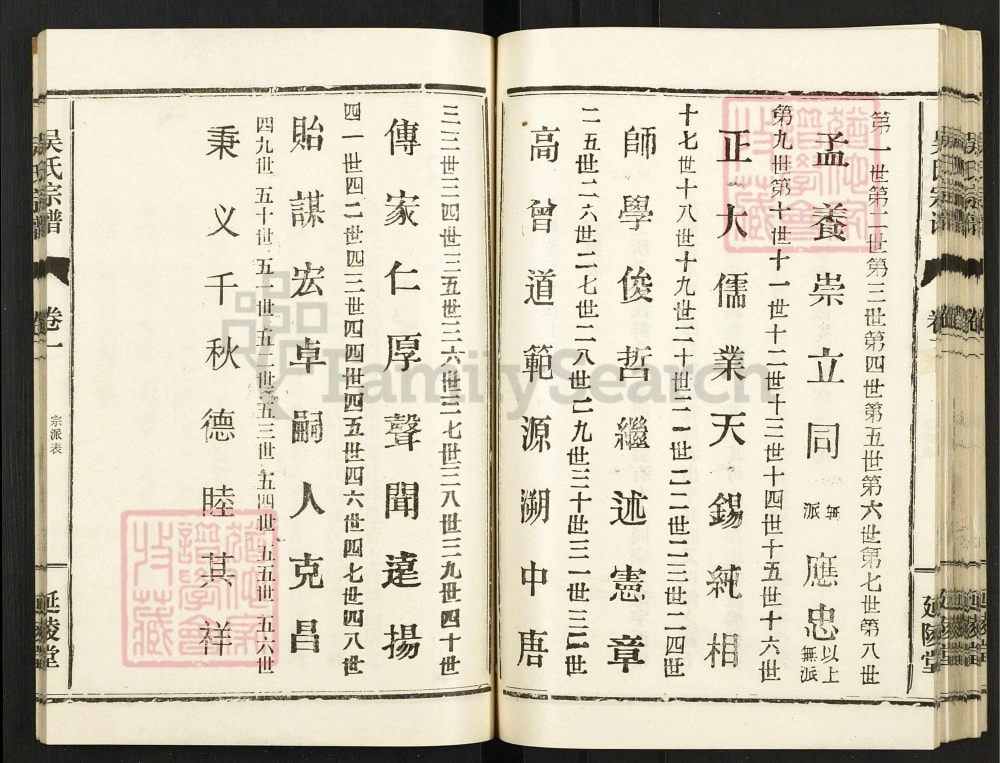 第一世第二世第三世第四世第五世第六世第七世第八世
孟養崇立同無派應忠以上無派
第九世第十世十一世十二世十三世十四世十五世十六世
正大儒業天錫純相
十七世十八世十九世二十世二一世二二世二三世二四世
師學俊哲繼述憲章
二五世二六世二七世二八世二九世三十世三一世三二世
高曾道範源溯中唐
延陵堂
三三世三四世三五世三六世三七世三八世三九世四十世
傳家仁厚聲聞遠揚
四一世四二世四三世四四世四五世四六世四七世四八世
貽謀宏卓嗣人克昌
四九世五十世五一世五二世五三世五四世五五世五六世
秉义千秋德睦其祥
吳氏宗譜
卷一
宗派表
延陵堂
FamilySearch